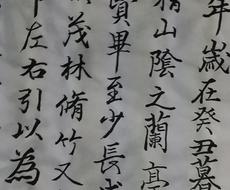 年歲在癸丑暮
稽山陰之蘭亭
賢畢至少長咸
茂林脩竹又
左右引以為